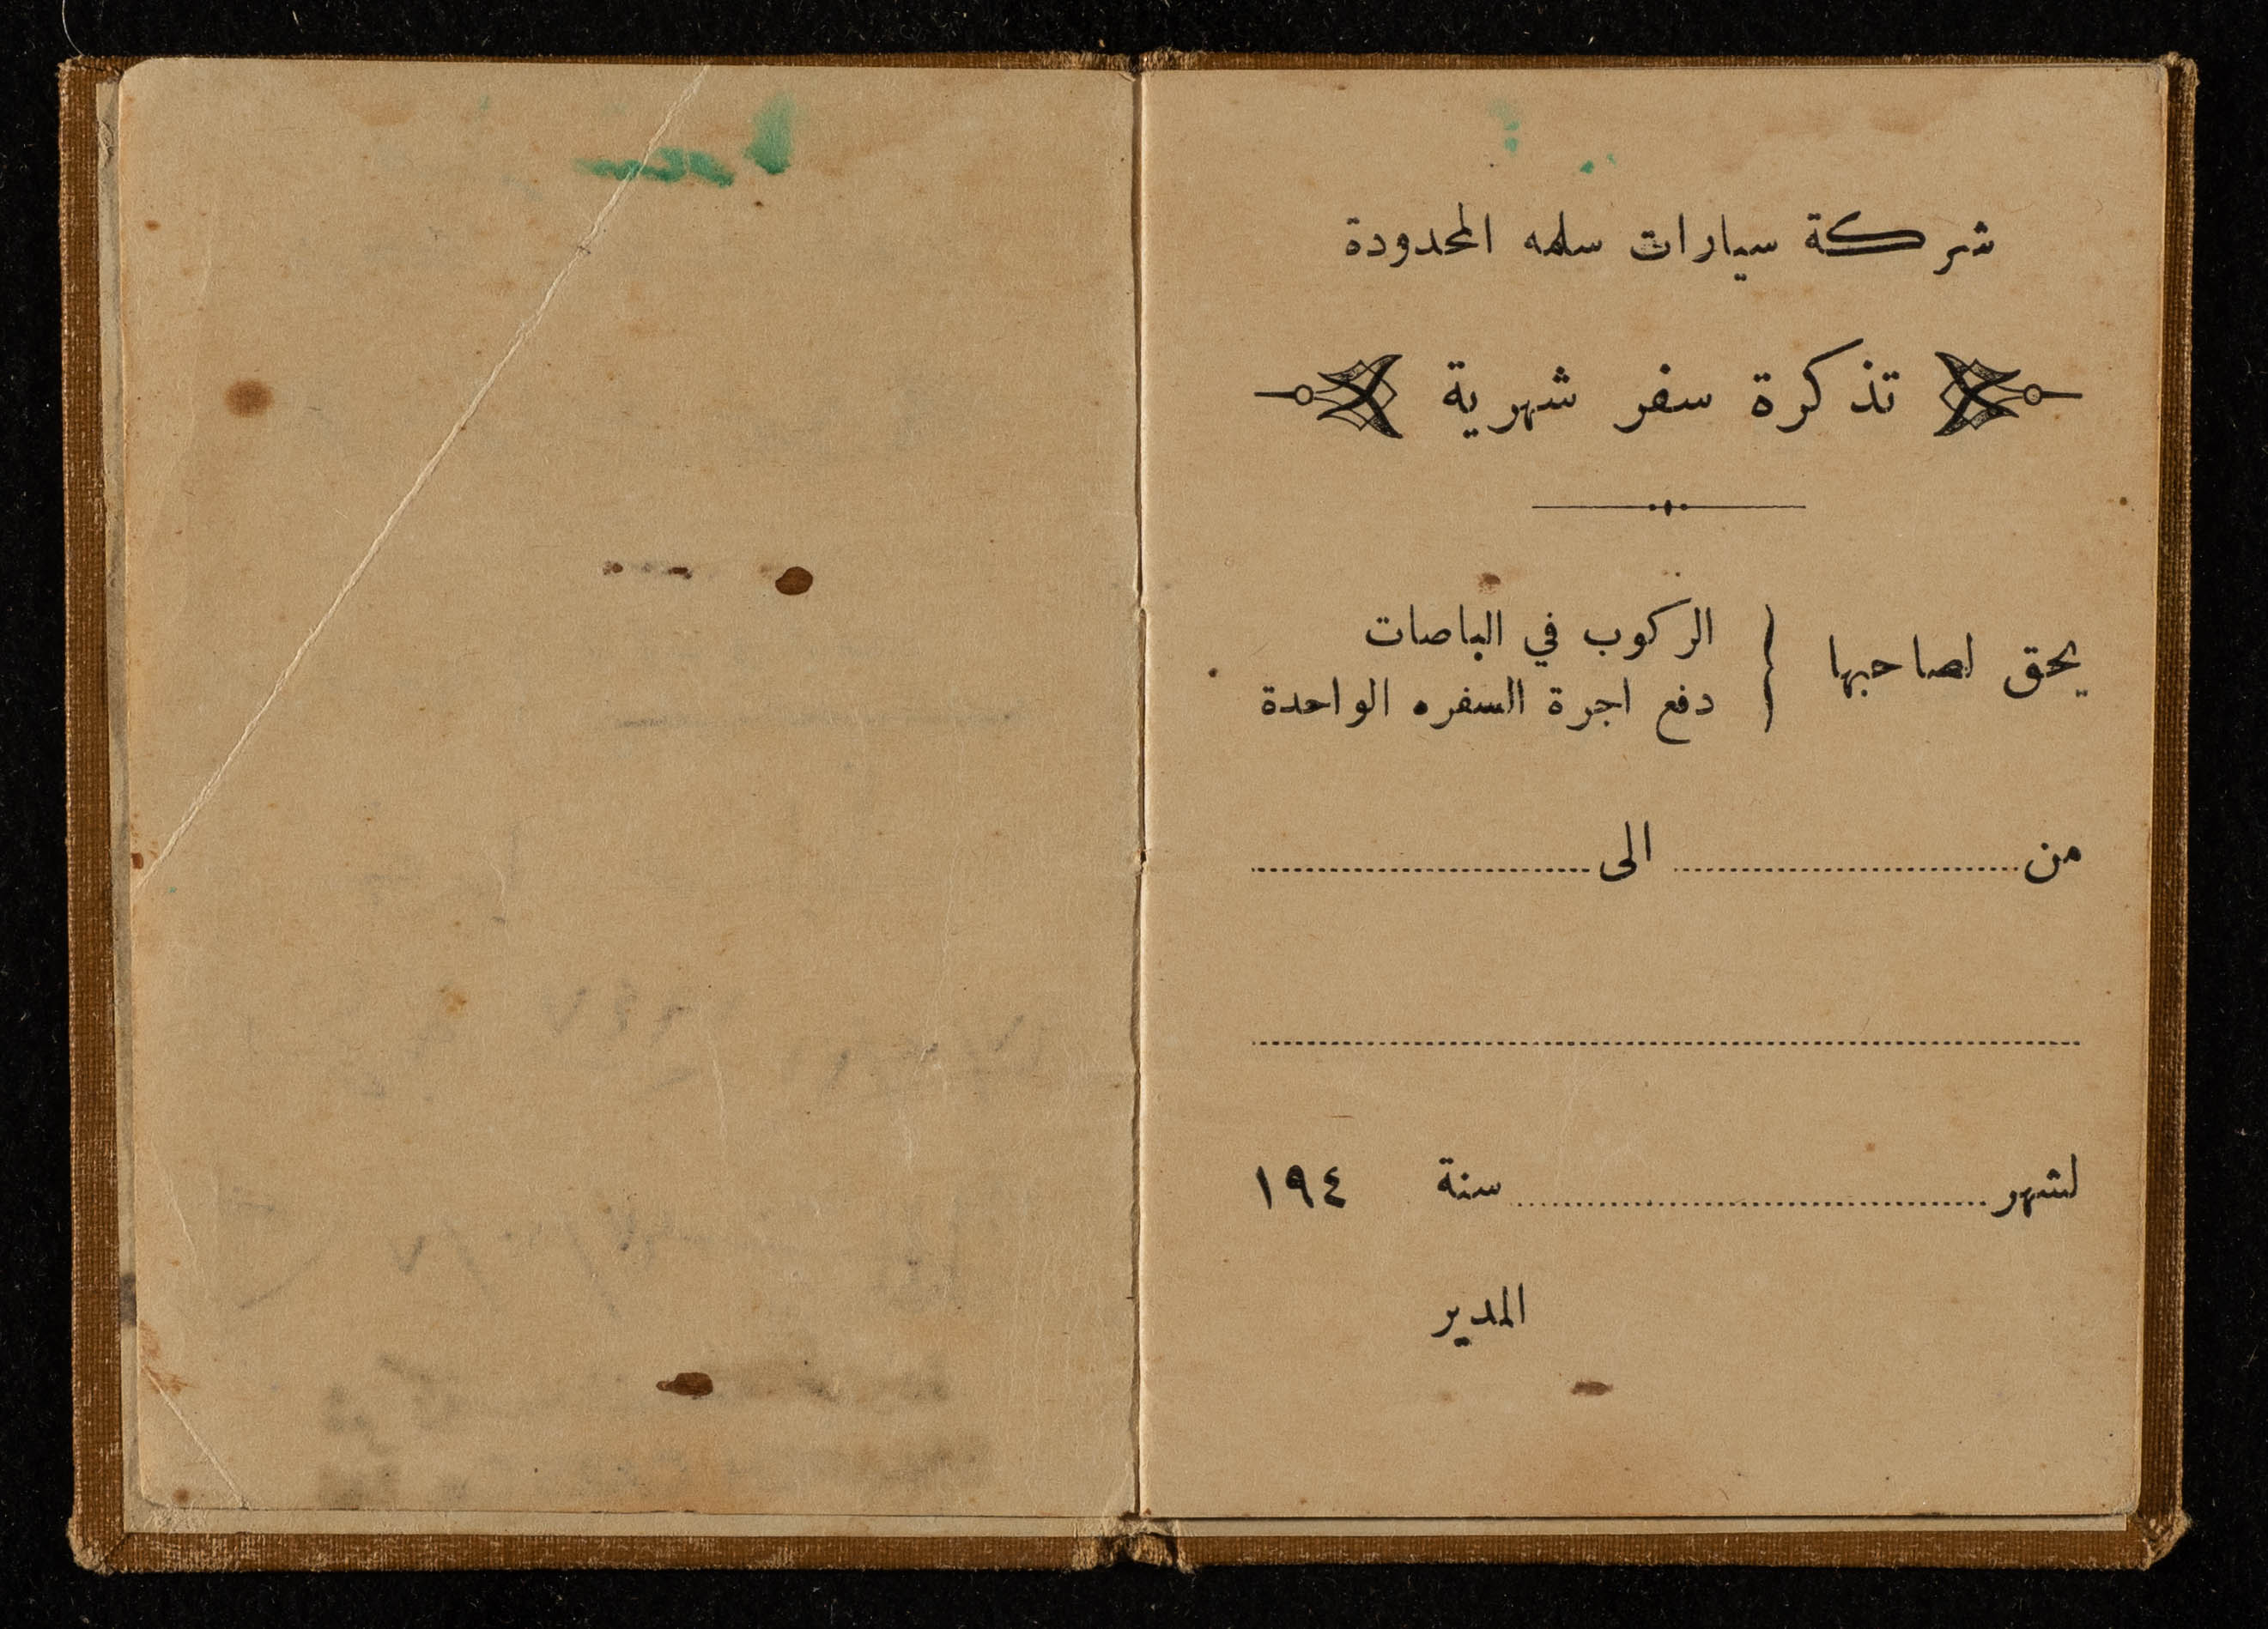 شركة سيارات سلمه المحدودة
تذكرة سفر شهرية
يحق لصاحبها { الركوب في الباصات
دفع اجرة السفره الواحدة
من........................ الى........................
................................................
لشهر................................سنة ١٩٤
المدير